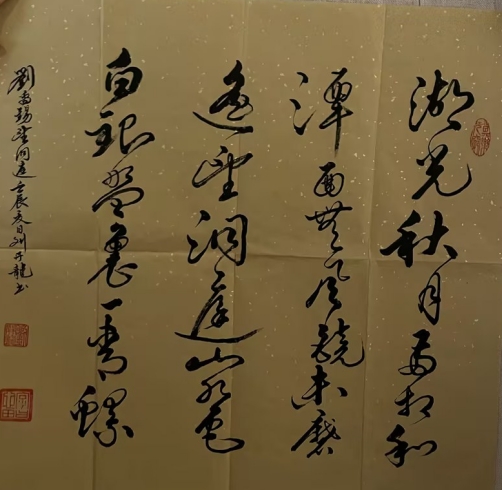 湖光秋月兩相和
潭面無風鏡未磨
遙望洞庭山水色
白銀盤裏一青螺
劉禹錫望洞庭壬辰夏日刘子龍书